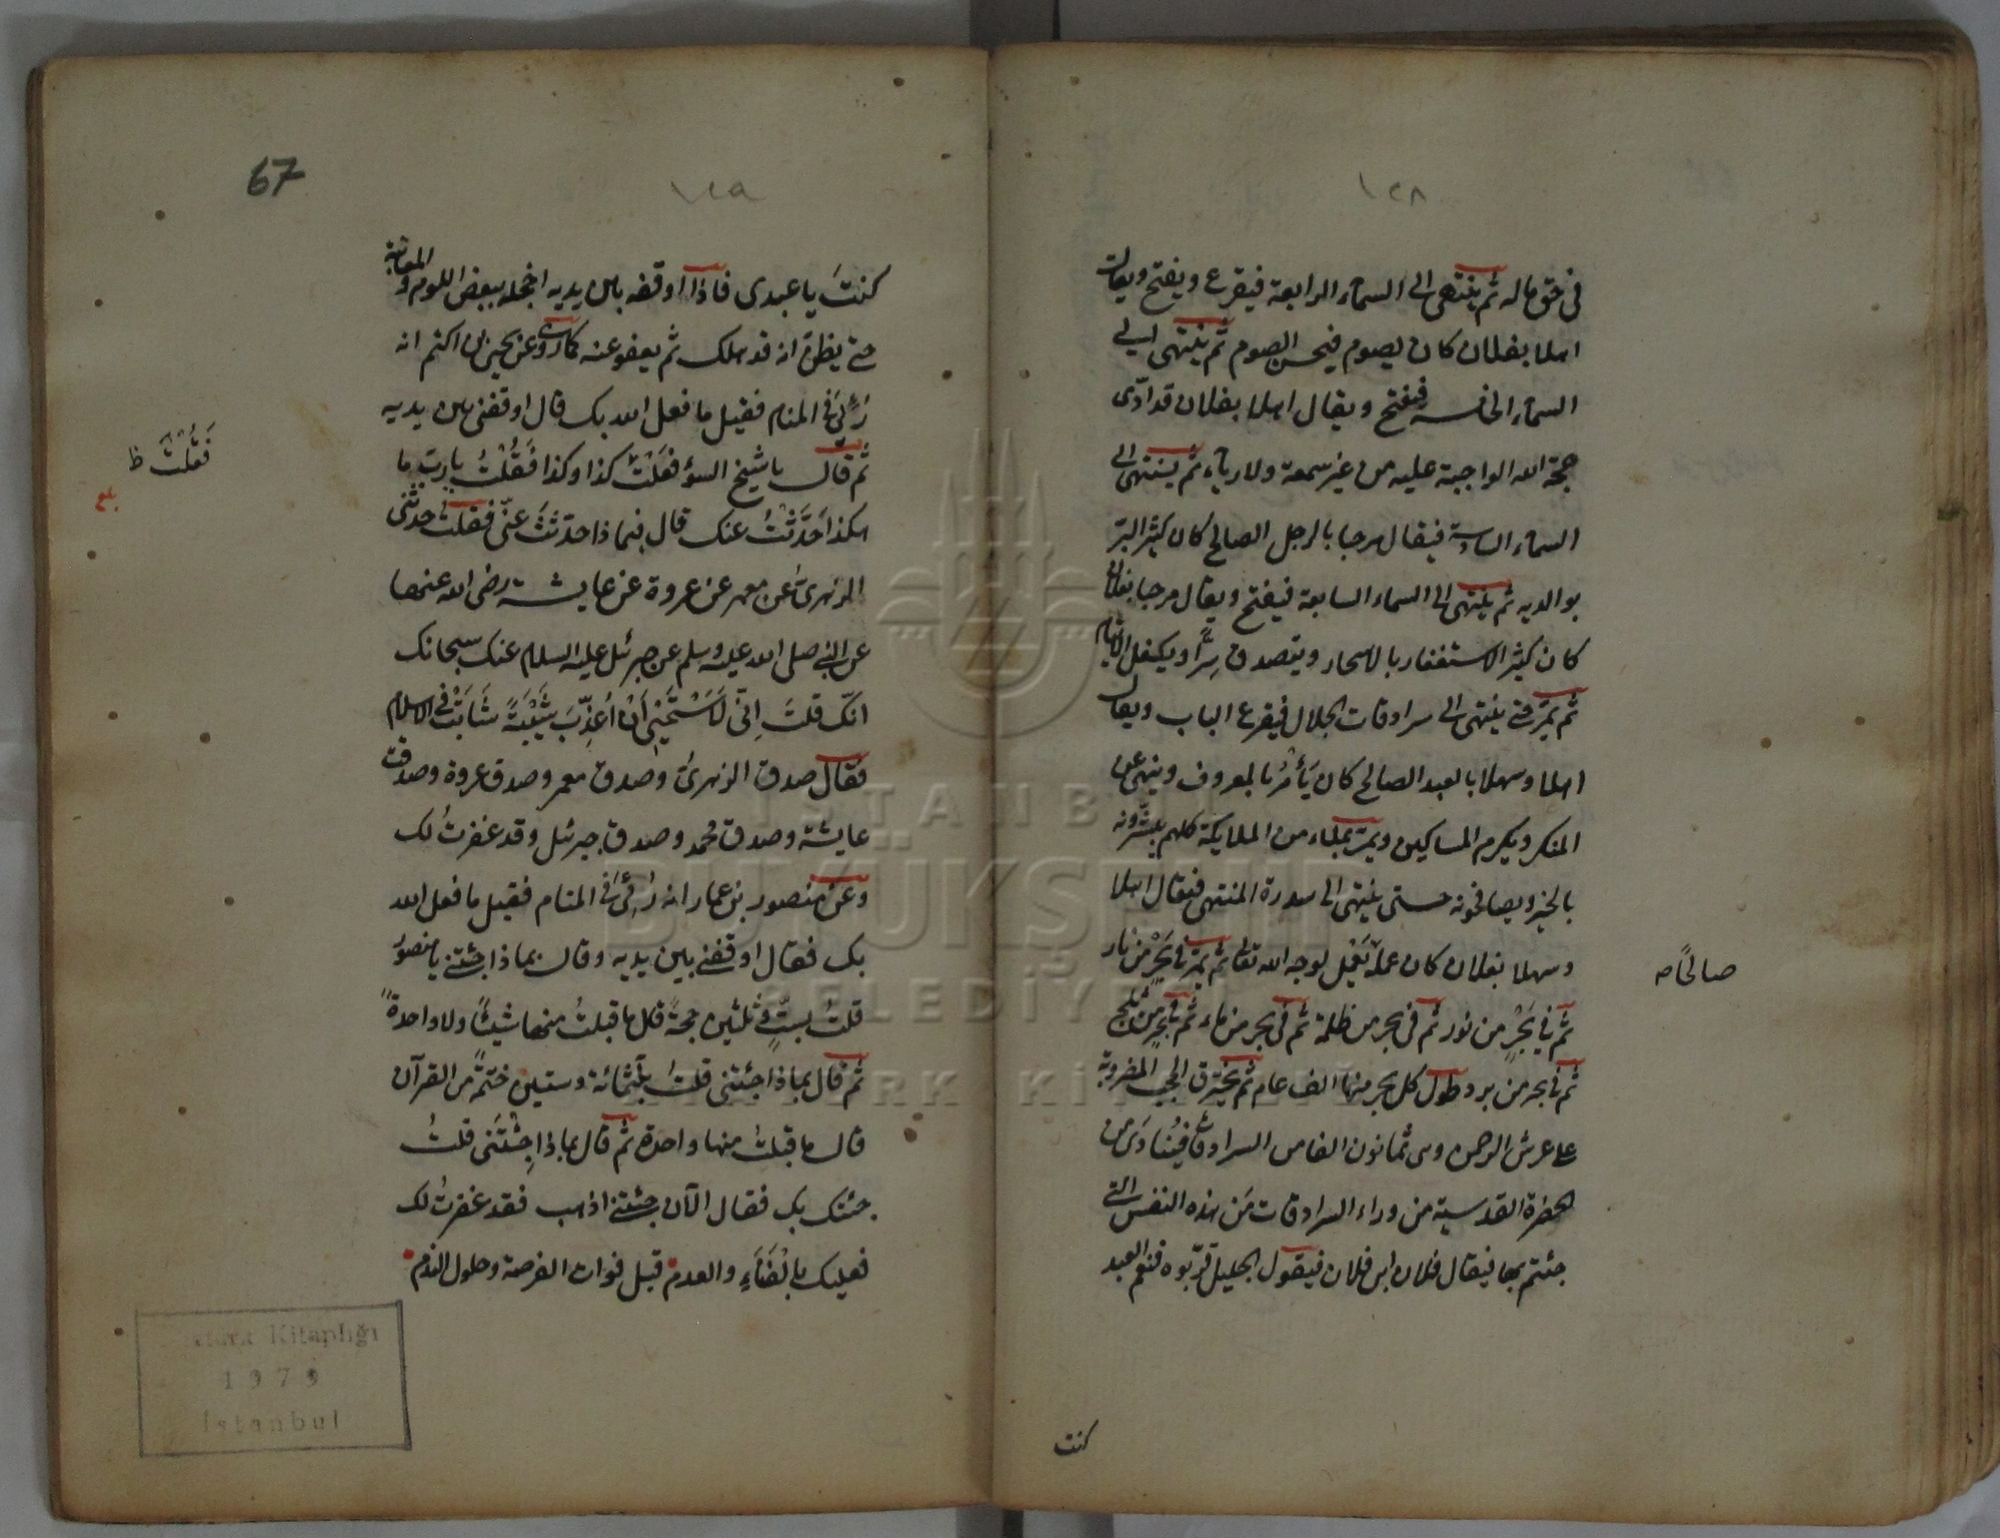 ١٢٨
في حق ماله ثم ينتهى الى السماء الرابعة فيقرع ويفتح ويقال
اهلا بفلان كان يصوم فيحسن الصوم ثم ينتهى الى
السماء الخامسة فيفتح ويقال اهلا بفلان قد ادّى
حجة الله الواجبة عليه من غير سمعة ولا رياء ثم ينتهى الى
السماء السادسة فيقال مرحبا بالرجل الصالح كان كثير البرّ
بوالديه ثم ينتهى الى السماء السابعة فيفتح ويقال مرحبا بفلان
كان كثير الاستغفار بالاسحار ويتصدق سِرًّا ويكفل الايتام
ثم يمرّ حتى ينتهى الى سرادقات الجلال فيقرع الباب ويقال
اهلا وسهلا بالعبد الصالح كان يَأمُرُ بالمعروف وينهى عن
المنكر ويكرم المساكين ويمرّ بملاء من الملايكة كلهم يبشّرونه
بالخير ويصافحونه حتى ينتهى الى سدرة المنتهى فيقال اهلا
وسهلا بفلان كان عمله يعمل لوجه الله تعالى ثم يمرّ في بَحْرٍ من نار
صالحًا صه
ثم في بَحْرٍ من نور ثم في بحر من ظلمة ثم في بحر من ماء ثم في بحر من ثلج
ثم في بحر من برد وطول كل بحر منها الف عام ثم يخترق الحجب المضروبة
على عرش الرحمن وهى ثمانون الفا من السرادقات فيُنَادَى من
الحضرة القدسية من وراء السرادقات مَن هذه النفس التى
جئتم بها فيقال فلان ابن فلان فيقول الجليل قرّبوه فنعم العبد
كنت
67
١٢٩
كنتَ يا عبدى فاذا اوقفه بين يديه اخجله ببعض اللوم والمعاتبة
حتى يظن انه قد هلك ثم يعفو عنه كما روى عن يحيى بن اكثم انه
رُئِىَ في المنام فقيل ما فعل الله بك قال اوقفنى بين يديه
ثم قال يا شيخ السوء فعلتَ كذا وكذا فقُلْتُ يا رب ما
فَقُلْتُ ظ
بلغ
هكذا حَدَّثْتُ عنك قال فبماذا حدّثتَ عنّى فقلتُ حدثنى
الزهرىّ عن معمر عن عروة عن عايشة رضى الله عنها
عن النبى صلى الله عليه وسلم عن جبرئل عليه السلام عنك سبحانك
انّك قلتَ اِنّى لَاَسْتَحْيِى اَنْ اُعَذِّبَ شَيْبَةً شَابَتْ في الاسلام
فقال صدق الزهرىّ وصدق معمر وصدق عروة وصدقت
عايشة وصدق محمد وصدق جبرئل وقد غفرتُ لك
وعن منصور بن عمار انه رُئِىَ في المنام فقيل ما فعل الله
بك فقال اوقفنى بين يديه وقال بماذا جئتنى يا منصورُ
قلتُ بستٍّ وثلثين حجةً قال ما قبلتُ منها شيئًا ولا واحدةً
ثم قال بماذا جئتنى قلتُ بثلثمائة وستين ختمةً من القرآن
قال ما قبلتُ منها واحدة ثم قال بماذا جِئْتَنى قلتُ
جئتك بك فقال الآن جئتنى اذهب فقد غفرتُ لك
فعليك بالْفَنَاءِ والعدم قبل فوات الفرصة وحلول الندم
Atatürk Kitaplığı
1979
İstanbul
İSTANBUL
BÜYÜKŞEHİR
BELEDİYESİ
ATATÜRK KİTAPLIĞI